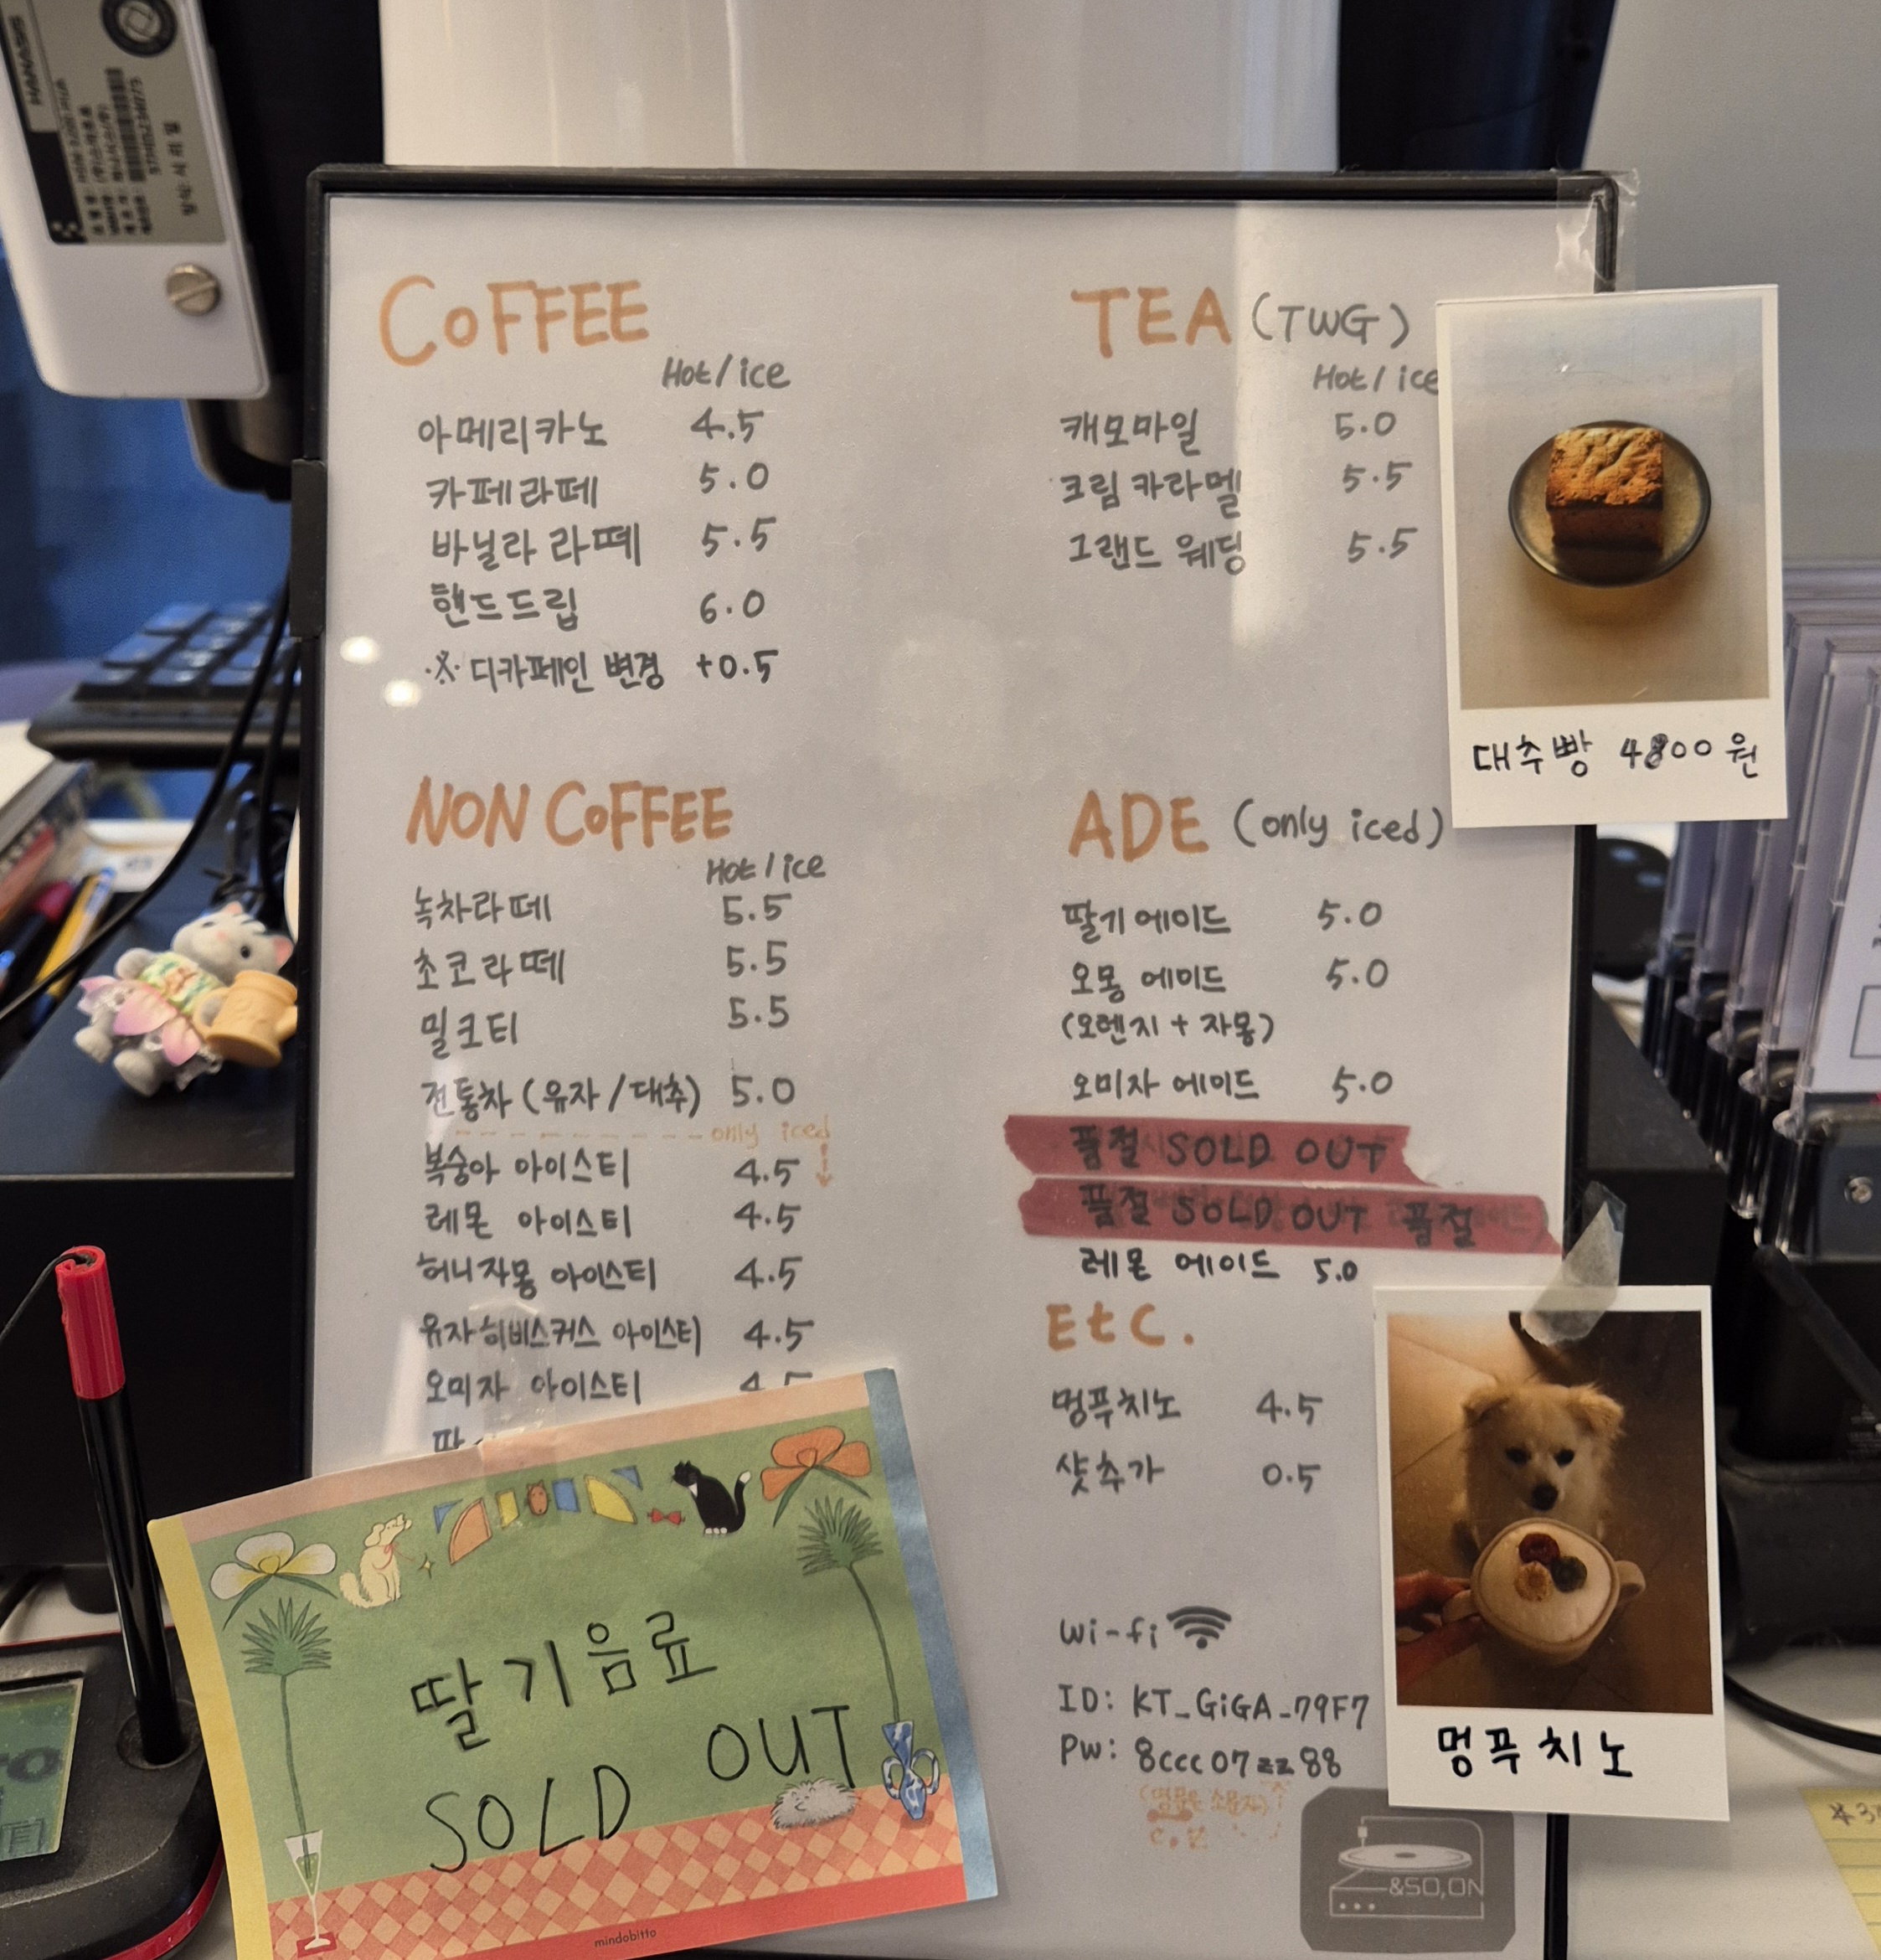 COFFEE
Hot/ice
아메리카노 4.5
카페라떼 5.0
바닐라 라떼 5.5
핸드드립 6.0
※ 디카페인 변경 +0.5
NON COFFEE
Hot/ice
녹차라떼 5.5
초코라떼 5.5
밀크티 5.5
전통차 (유자/대추) 5.0
only iced
복숭아 아이스티 4.5
레몬 아이스티 4.5
허니자몽 아이스티 4.5
유자히비스커스 아이스티 4.5
오미자 아이스티
딸기음료
SOLD OUT
mindobitto
TEA (TWG)
Hot/ice
캐모마일 5.0
크림 카라멜 5.5
그랜드 웨딩 5.5
대추빵 4800원
ADE (only iced)
딸기 에이드 5.0
오몽 에이드 5.0
(오렌지 + 자몽)
오미자 에이드 5.0
품절 SOLD OUT
품절 SOLD OUT 품절
레몬 에이드 5.0
EtC.
멍푸치노 4.5
샷추가 0.5
wi-fi
ID: KT_GiGA_79F7
PW: 8ccc07zz88
멍푸치노
&SO,ON